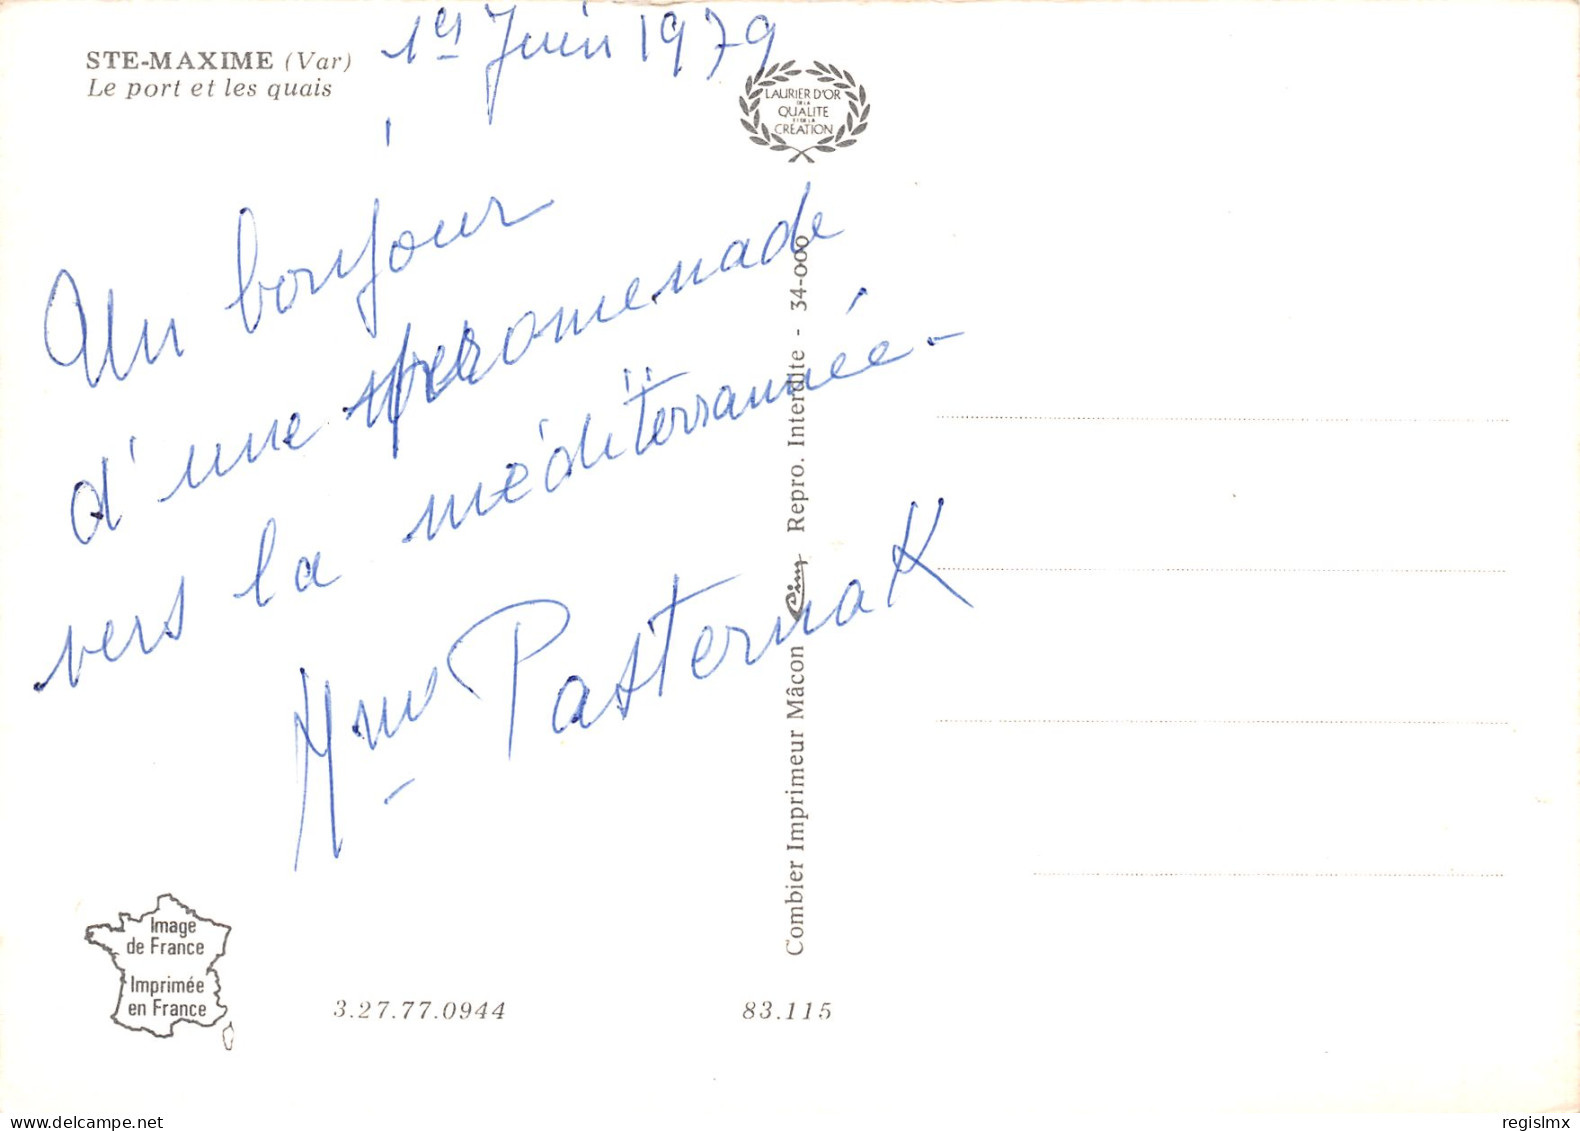 STE-MAXIME (Var)
Le port et les quais
1er Juin 1979
LAURIER D'OR
DE LA
QUALITE
ET DE LA
CRÉATION
Un bonjour
d'une promenade
vers la méditerrannée -
Mme Pasternak
Combier Imprimeur Mâcon Cim Repro. Interdite - 34-000
Image
de France
Imprimée
en France
3.27.77.0944
83.115
regislmx